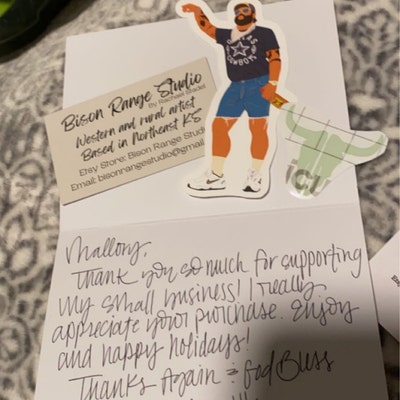 Bison Range Studio
Western and rural artist
Based in Northeast KS
Etsy Store: Bison Range Stud
Email: bisonrangestudio@gmail
COWBOYS
Mallory,
Thank you so much for supporting
my small business! I really
appreciate your purchase. Enjoy
and happy holidays!
Thanks Again & God Bless